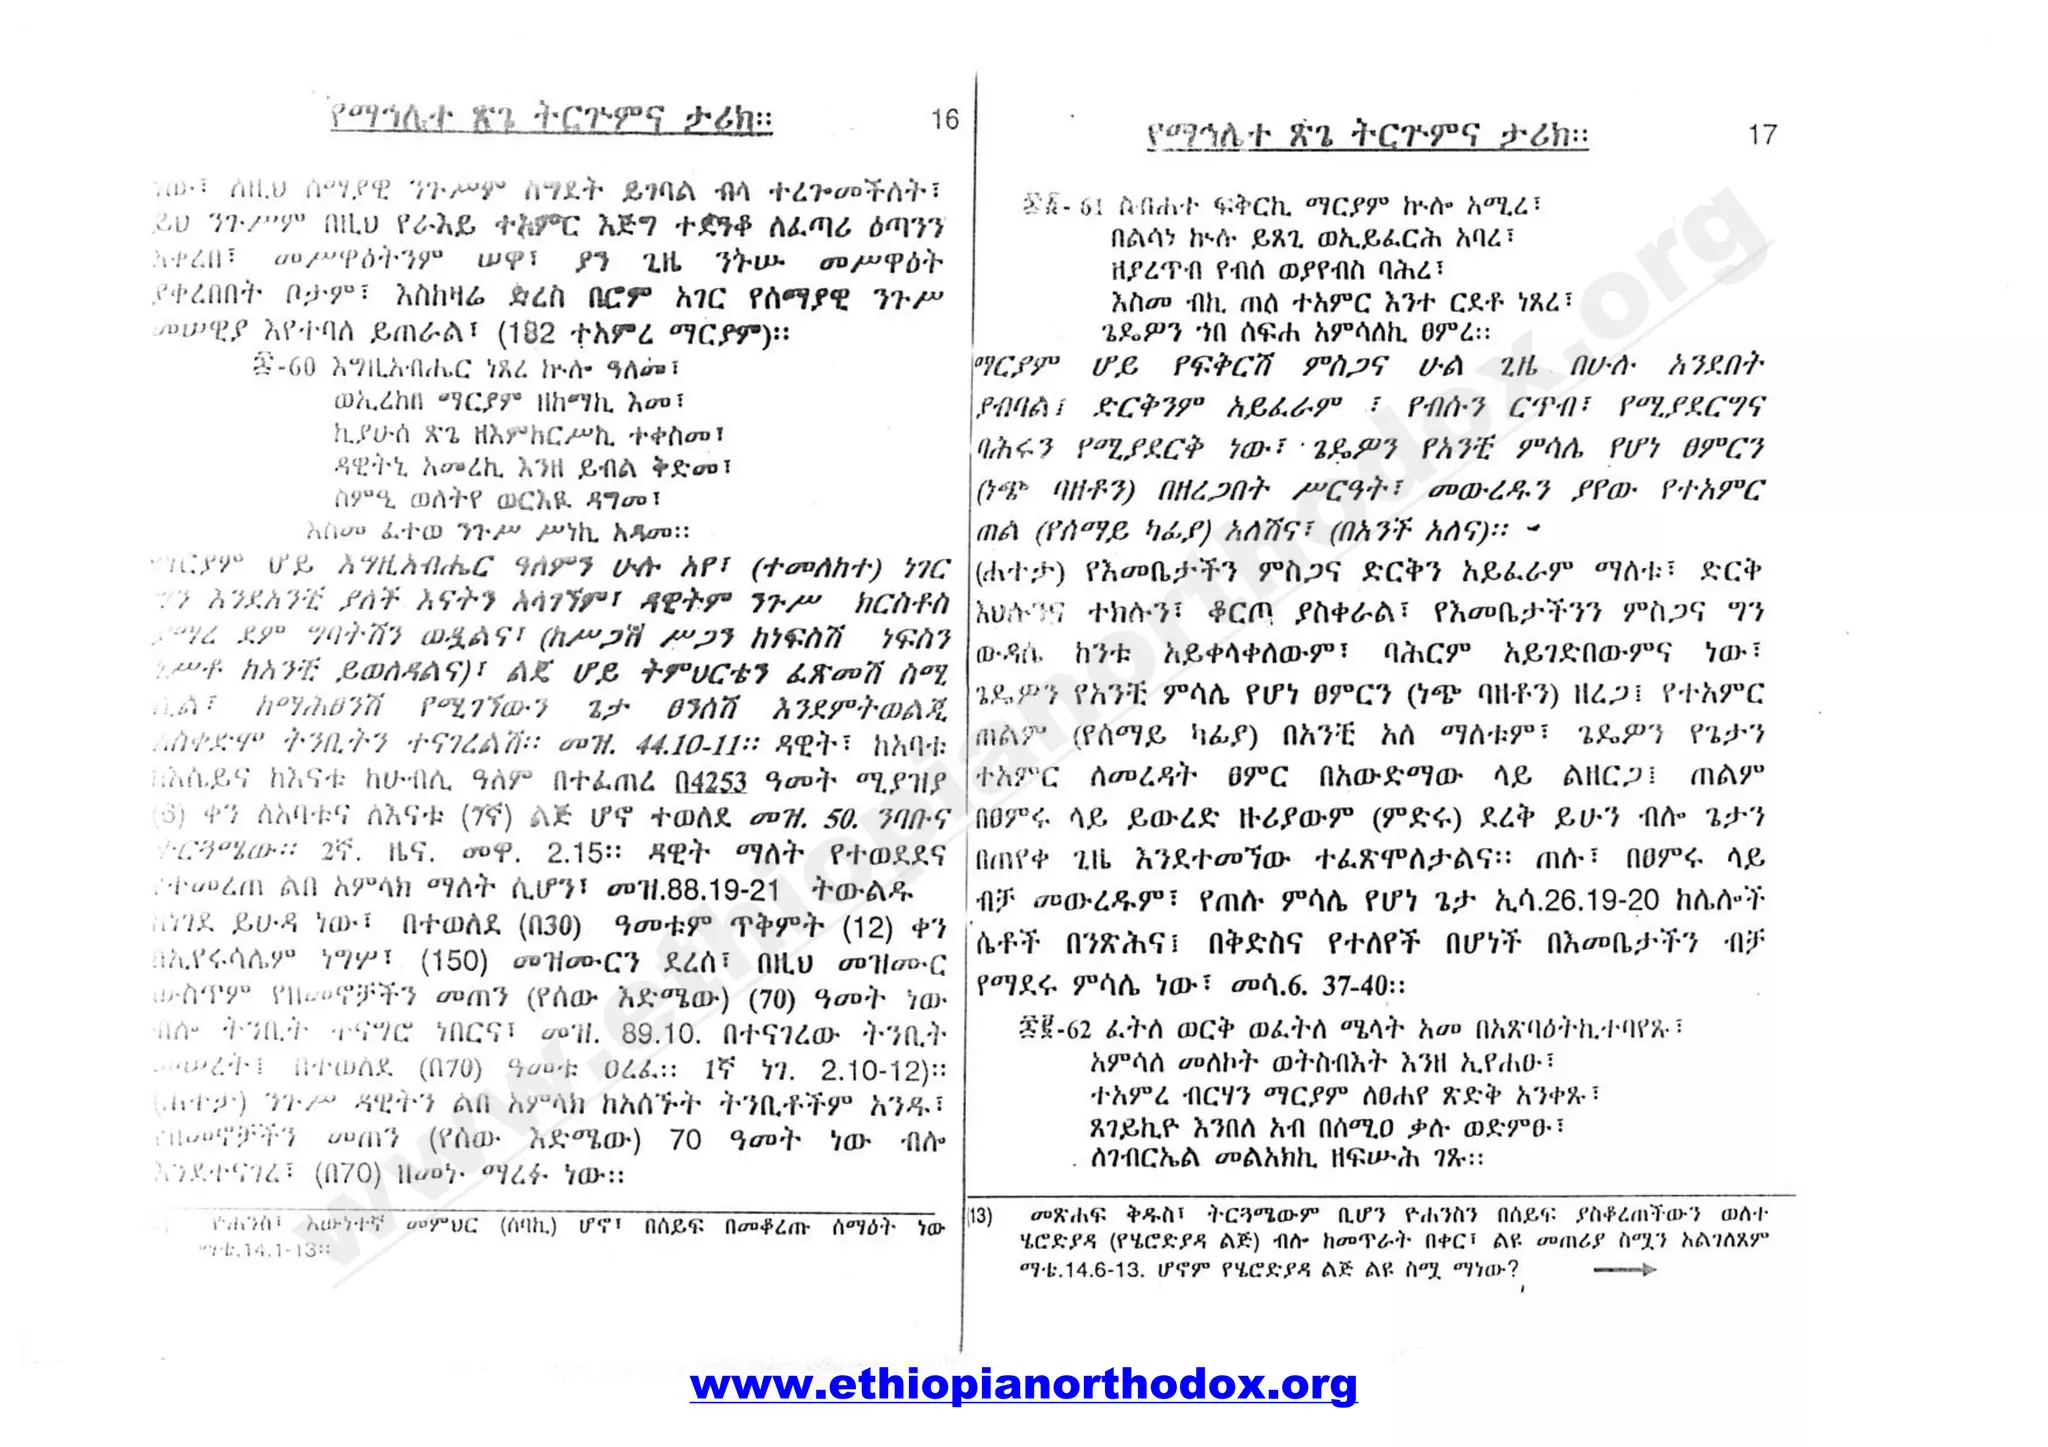 የማኅሌተ ጽጌ ትርጕምና ታሪክ። 16
ነው፣ ለዚህ ሰማያዊ ንጉሥም ስግደት ይገባል ብላ ተረጐመችለት፣
ይህ ንጉሥም በዚህ የራእይ ተአምር እጅግ ተደንቆ ለፈጣሪ ዕጣንን
አቀረበ፣ መሥዋዕትንም ሠዋ፣ ያን ጊዜ ንትሡ መሥዋዕት
ያቀረበበት ቦታም፣ እስከዛሬ ድረስ በሮም አገር የሰማያዊ ንጉሥ
መሠዊያ እየተባለ ይጠራል፣ (182 ተአምረ ማርያም)።
፷-60 እግዚአብሔር ነጸረ ኵሎ ዓለመ፣
ወኢረከበ ማርያም ዘከማኪ እመ፣
ኪያሁሰ ጽጌ ዘእምከርሥኪ ተቀስመ፣
ዳዊትኒ አመረኪ እንዘ ይብል ቅድመ፣
ስምዒ ወለትየ ወርእዪ ዳግመ፣
እስመ ፈተወ ንጉሥ ሥነኪ አዳመ።
ማርያም ሆይ እግዚአብሔር ዓለምን ሁሉ አየ፣ (ተመለከተ) ነገር
ግን እንደአንቺ ያለች እናትን አላገኘም፣ ዳዊትም ንጉሥ ክርስቶስ
ያማረ ደም ግባትሽን ወዷልና፣ (ከሥጋሽ ሥጋን ከነፍስሽ ነፍስን
ነሥቶ ከአንቺ ይወለዳልና)፣ ልጄ ሆይ ትምህርቴን ፈጽመሽ ስሚ
ሲል፣ ከማሕፀንሽ የሚገኘውን ጌታ ፀንሰሽ እንደምትወልጂ
አስቀድሞ ትንቢትን ተናገረልሽ። መዝ. 44.10-11። ዳዊት፣ ከአባቱ
ከእሴይና ከእናቱ ከሁብሊ ዓለም በተፈጠረ በ4253 ዓመት ሚያዝያ
(6) ቀን ለአባቱና ለእናቱ (፯ኛ) ልጅ ሆኖ ተወለደ መዝ. 50. ንባቡና
ትርጓሜው። 2ኛ. ዜና. መዋ. 2.15። ዳዊት ማለት የተወደደና
የተመረጠ ልበ አምላክ ማለት ሲሆን፣ መዝ.88.19-21 ትውልዱ
ከነገደ ይሁዳ ነው፣ በተወለደ (በ30) ዓመቱም ጥቅምት (12) ቀን
በኢየሩሳሌም ነግሦ፣ (150) መዝሙርን ደረሰ፣ በዚህ መዝሙር
ውስጥም የዘመኖቻችን መጠን (የሰው እድሜው) (70) ዓመት ነው
ብሎ ትንቢት ተናግሮ ነበርና፣ መዝ. 89.10. በተናገረው ትንቢት
መሠረት፤ በተወለደ (በ70) ዓመቱ ዐረፈ። 1ኛ ነገ. 2.10-12)።
(ሐተታ) ንጉሥ ዳዊትን ልበ አምላክ ከአሰኙት ትንቢቶችም አንዱ፣
የዘመኖቻችን መጠን (የሰው እድሜው) 70 ዓመት ነው ብሎ
እንደተናገረ፣ (በ70) ዘመኑ ማረፉ ነው።
ዮሐንስ፣ እውነተኛ መምህር (ሰባኪ) ሆኖ፣ በሰይፍ በመቆረጡ ሰማዕት ነው
ማቴ.14.1-13።
የማኅሌተ ጽጌ ትርጕምና ታሪክ። 17
፷፩- 61 ስብሐተ ፍቅርኪ ማርያም ኵሎ አሚረ፣
በልሳነ ኵሉ ይጸጊ ወኢይፈርሕ አባረ፣
ዘያረጥብ የብሰ ወያየብስ ባሕረ፣
እስመ ብኪ ጠለ ተአምር እንተ ርደቶ ነጸረ፣
ጌዴዎን ኀበ ሰፍሐ አምሳለኪ ፀምረ።
ማርያም ሆይ የፍቅርሽ ምስጋና ሁል ጊዜ በሁሉ አንደበት
ያብባል፤ ድርቅንም አይፈራም ፣ የብሱን ርጥብ፣ የሚያደርግና
ባሕሩን የሚያደርቅ ነው፣ ጌዴዎን የአንቺ ምሳሌ የሆነ ፀምርን
(ነጭ ባዘቶን) በዘረጋበት ሥርዓት፣ መውረዱን ያየው የተአምር
ጠል (የሰማይ ካፊያ) አለሽና፣ (በአንች አለና)።
(ሐተታ) የእመቤታችን ምስጋና ድርቅን አይፈራም ማለቱ፣ ድርቅ
እህሉንና ተክሉን፣ ቆርጦ ያስቀራል፣ የእመቤታችንን ምስጋና ግን
ውዳሴ ከንቱ አይቀላቀለውም፣ ባሕርም አይገድበውምና ነው፣
ጌዴዎን የአንቺ ምሳሌ የሆነ ፀምርን (ነጭ ባዘቶን) ዘረጋ፤ የተአምር
ጠልም (የሰማይ ካፊያ) በአንቺ አለ ማለቱም፣ ጌዴዎን የጌታን
ተአምር ለመረዳት ፀምር በአውድማው ላይ ልዘርጋ፤ ጠልም
በፀምሩ ላይ ይውረድ ዙሪያውም (ምድሩ) ደረቅ ይሁን ብሎ ጌታን
በጠየቀ ጊዜ እንደተመኘው ተፈጽሞለታልና። ጠሉ፣ በፀምሩ ላይ
ብቻ መውረዱም፣ የጠሉ ምሳሌ የሆነ ጌታ ኢሳ.26.19-20 ከሌሎች
ሴቶች በንጽሕና፤ በቅድስና የተለየች በሆነች በእመቤታችን ብቻ
የማደሩ ምሳሌ ነው፣ መሳ.6. 37-40።
፷፪-62 ፈትለ ወርቅ ወፈትለ ሜላት አመ በአጽባዕትኪ ተባየጹ፣
አምሳለ መለኮት ወትስብእት እንዘ ኢየሐፁ፣
ተአምረ ብርሃን ማርያም ለፀሐየ ጽድቅ አንቀጹ፣
ጸገይኪዮ እንበለ አብ በሰሚዐ ቃሉ ወድምፁ፣
ለገብርኤል መልአክኪ ዘፍሡሕ ገጹ።
(13) መጽሐፍ ቅዱስ፣ ትርጓሜውም ቢሆን ዮሐንስን በሰይፍ ያስቆረጠችውን ወለተ
ሄሮድያዳ (የሄሮድያዳ ልጅ) ብሎ ከመጥራት በቀር፣ ልዩ መጠሪያ ስሟን አልገለጸም
ማቴ.14.6-13. ሆኖም የሄሮድያዳ ልጅ ልዩ ስሟ ማነው?
www.ethiopianorthodox.org
www.ethiopianorthodox.org